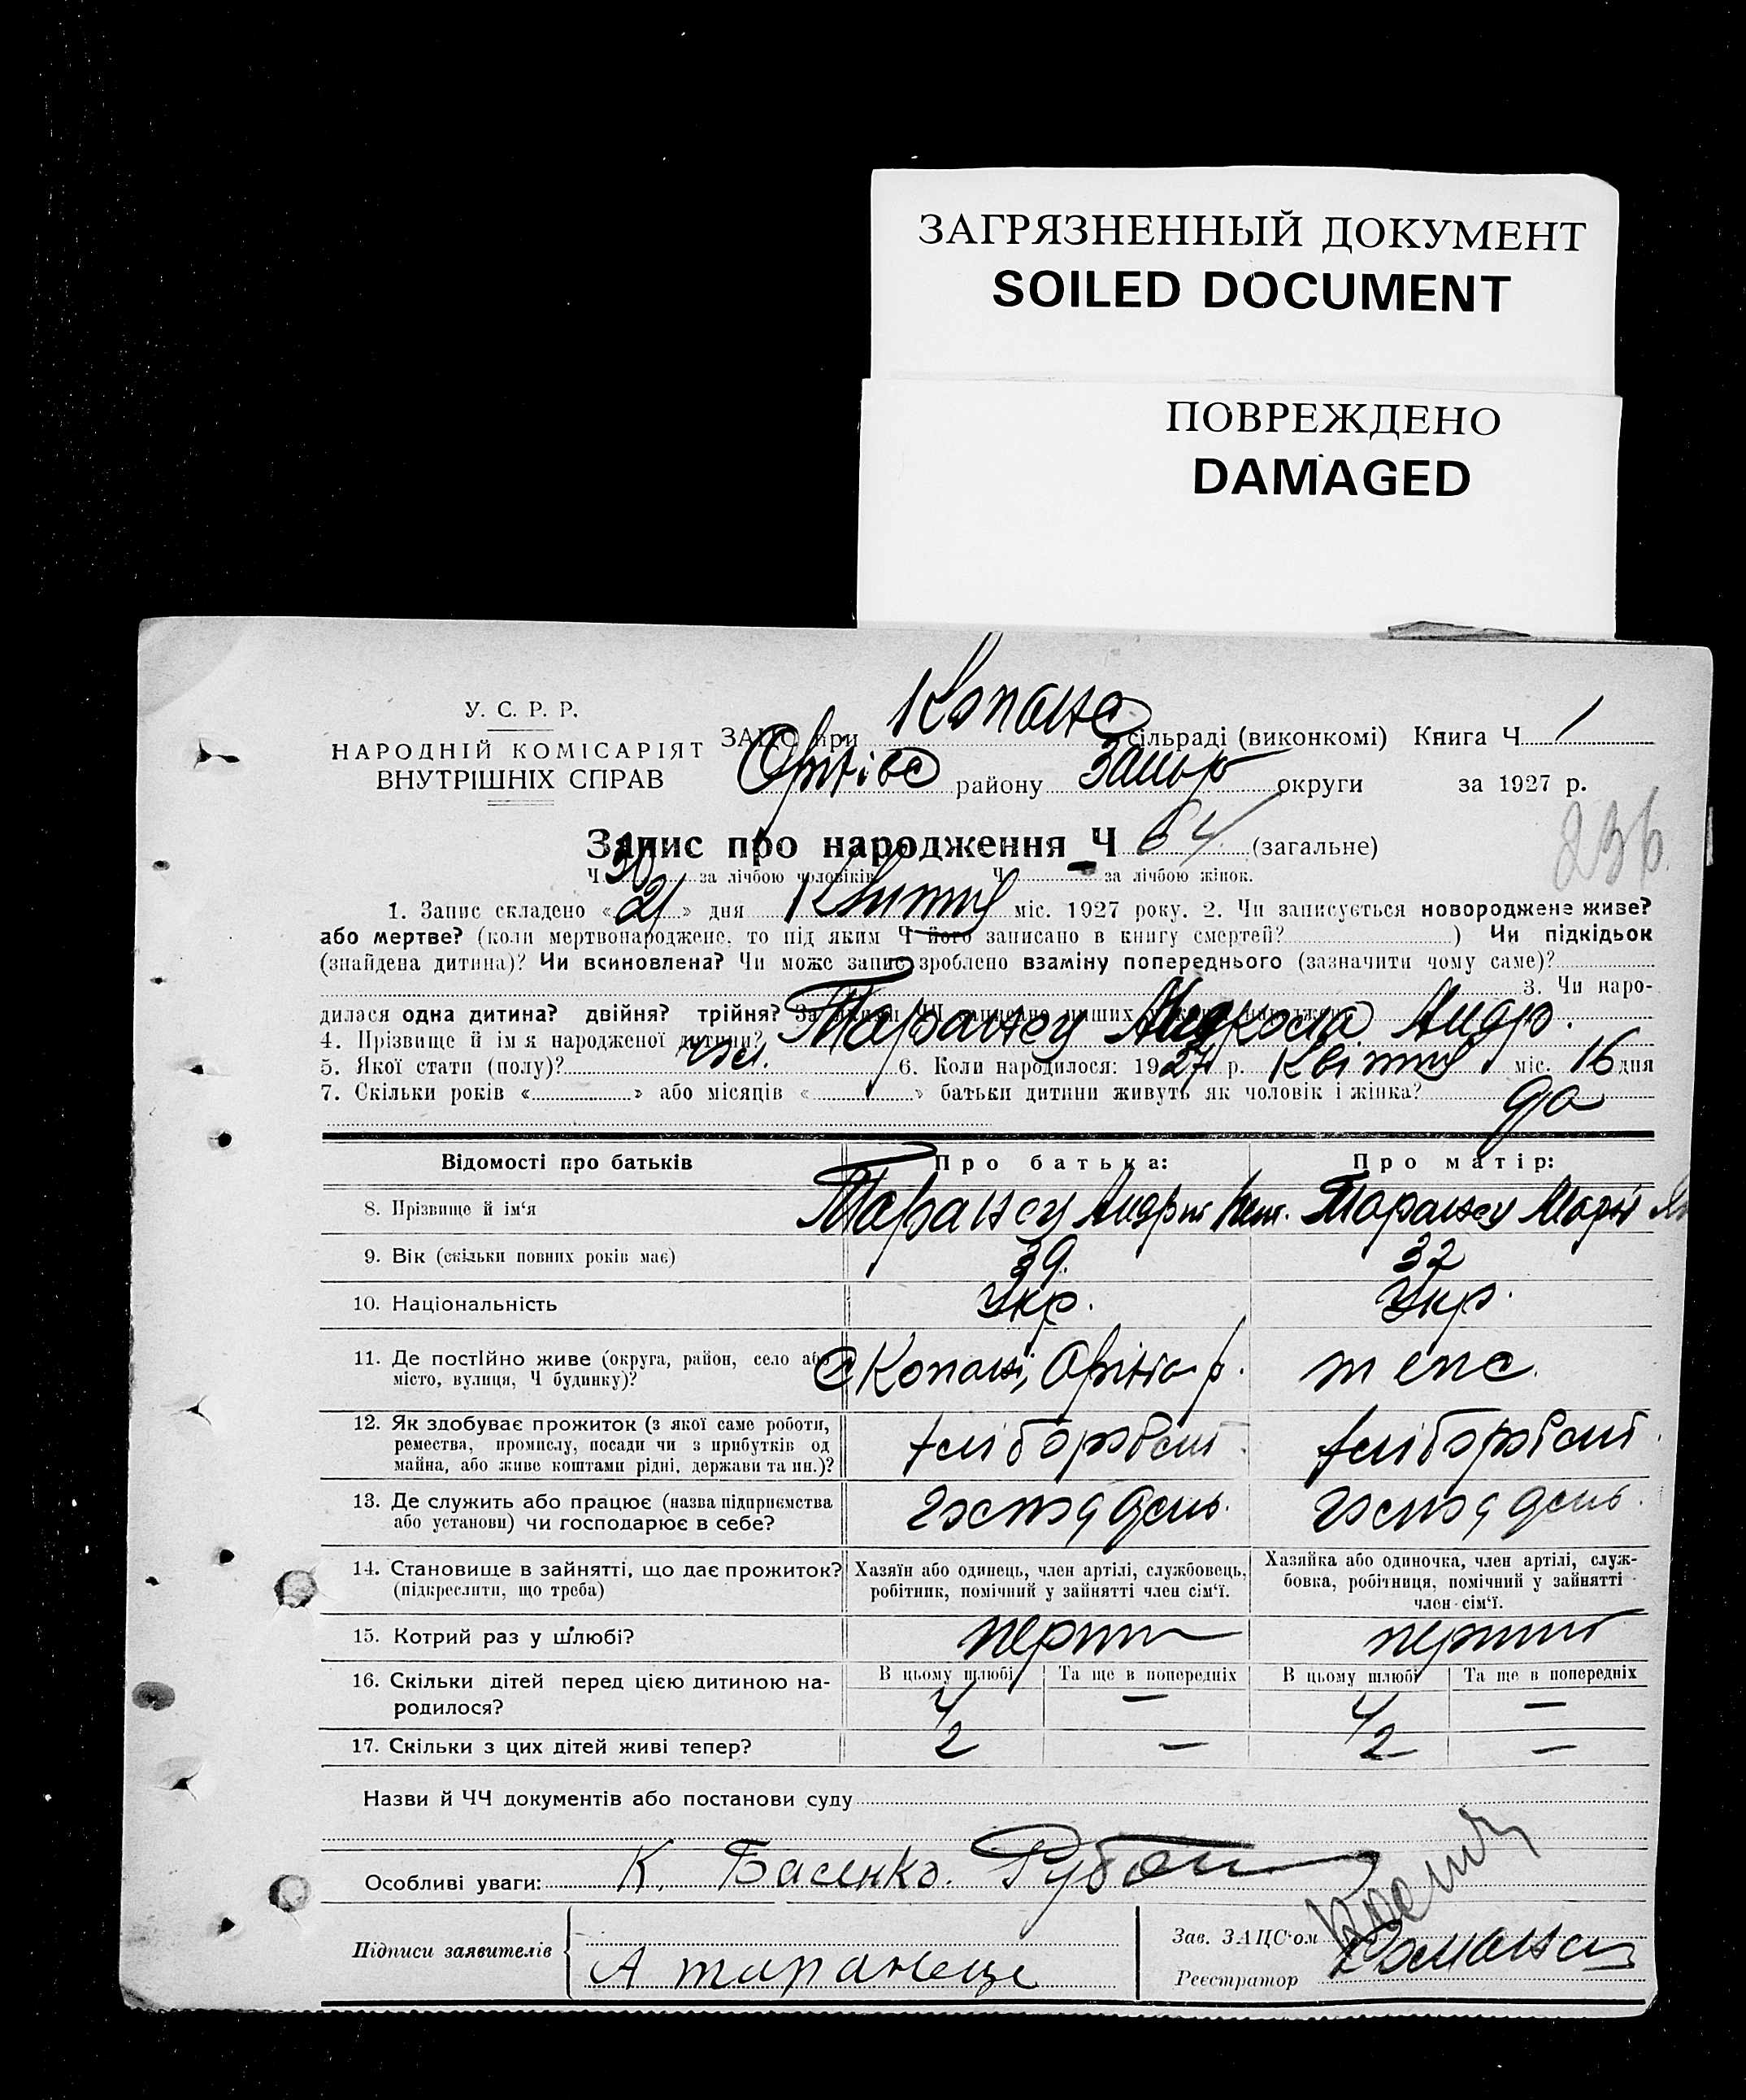 ЗАГРЯЗНЕННЫЙ ДОКУМЕНТ
SOILED DOCUMENT
ПОВРЕЖДЕНО
DAMAGED
У. С. Р. Р.
НАРОДНІЙ КОМІСАРІЯТ
ВНУТРІШНІХ СПРАВ
ЗАЦС при Копанс сільраді (виконкомі) Книга Ч 1
Оріхівс району Запор округи за 1927 р.
236
Запис про народження Ч 64 (загальне)
Ч 30 за лічбою чоловіків Ч - за лічбою жінок.
1. Запис складено « 21 » дня Квітня міс. 1927 року. 2. Чи записується новороджене живе?
або мертве? (коли мертвонароджене, то під яким Ч його записано в книгу смертей? ) Чи підкідьок
(знайдена дитина)? Чи всиновлена? Чи може запис зроблено взаміну попереднього (зазначити чому саме)?
3. Чи наро-
дилася одна дитина? двійня? трійня? За якими ЧЧ записано инших
4. Прізвище й ім'я народженої дитини? Таранец Андр.
5. Якої стати (полу)? чол. 6. Коли народилося: 1927 р. Квітня міс. 16 дня
7. Скільки років « » або місяців « » батьки дитини живуть як чоловік і жінка? да
Відомості про батьків Про батька: Про матір:
8. Прізвище й ім'я Таранец Андрій Таранец Марія
9. Вік (скільки повних років має) 39. 32
10. Національність Укр. Укр.
11. Де постійно живе (округа, район, село або С Копані, р. теж
місто, вулиця, Ч будинку)?
12. Як здобуває прожиток (з якої саме роботи, хліборобст. хліборобст.
ремества, промислу, посади чи з прибутків од
майна, або живе коштами рідні, держави та ин.)?
13. Де служить або працює (назва підприємства
або установи) чи господарює в себе?
14. Становище в зайнятті, що дає прожиток? Хазяїн або одинець, член артілі, службовець, Хазяйка або одиночка, член артілі, служ-
(підкреслити, що треба) робітник, помічний у зайнятті член сім'ї. бовка, робітниця, помічний у зайнятті
член сім'ї.
15. Котрий раз у шлюбі? перший перший
16. Скільки дітей перед цією дитиною на- В цьому шлюбі Та ще в попередніх В цьому шлюбі Та ще в попередніх
родилося? 4 — 4 —
17. Скільки з цих дітей живі тепер? 2 — 2 —
Назви й ЧЧ документів або постанови суду
Особливі уваги: К. Басенко.
Підписи заявителів А таранець
Зав. ЗАЦС'ом
Реєстратор